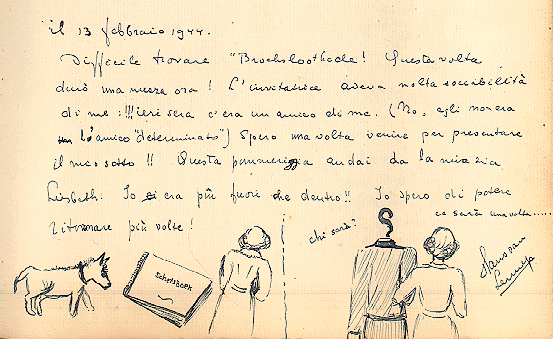 il 13 febbraio 1944.
Difficile trovare "Broeksloothede! Questa volta
durò una mezza ora! L'invitatrice aveva molta sociibilità
di me:!!! ieri sera c'era un amico di me. (No, egli non era
l'amico "determinato") Spero una volta venire per presentare
il mio !! Questa pommeriggia andai da la mia zia
Lisbeth. Io era più fuori che dentro!! Io spero di potere
ritornare più volte!
ce sarà una volta.....
chi sarà?
Schetsboek